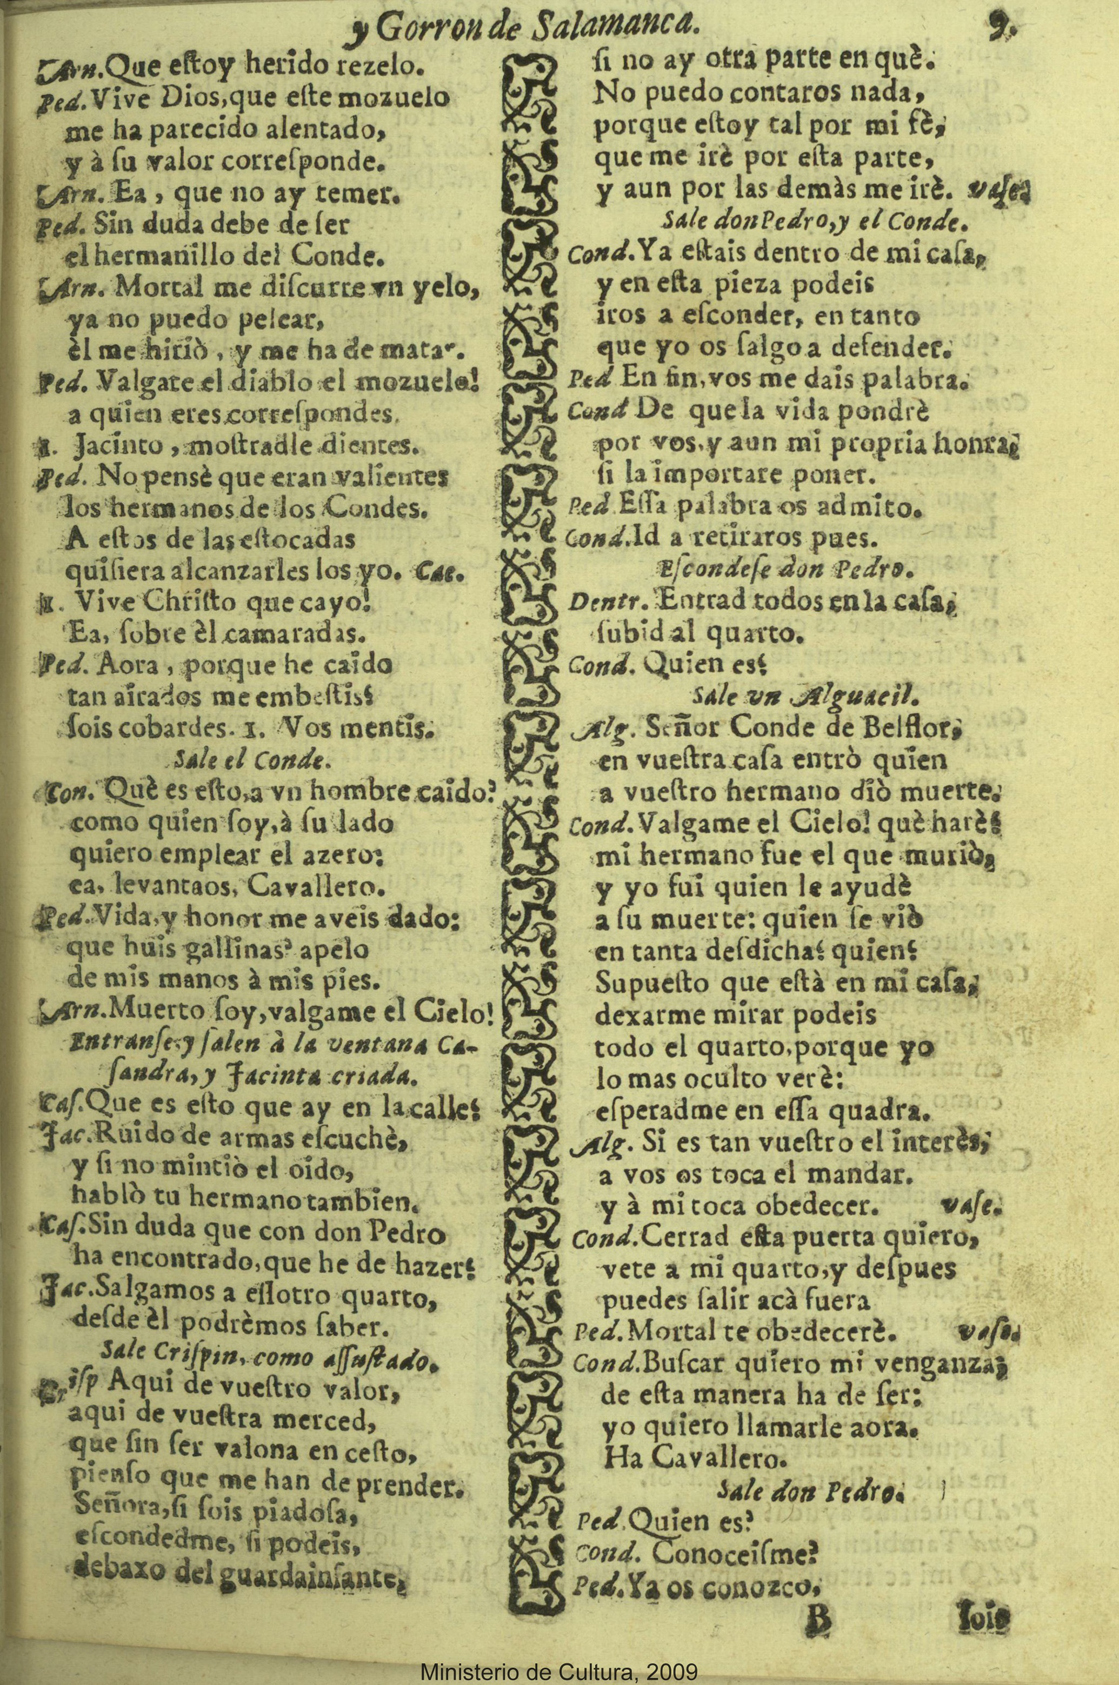 y Gorron de Salamanca. 9.
Arn. Que eſtoy herido rezelo.
Ped. Vive Dios, que eſte mozuelo
me ha parecido alentado,
y à ſu valor correſponde.
Arn. Ea, que no ay temer.
Ped. Sin duda debe de ſer
el hermanillo del Conde.
Arn. Mortal me diſcurre vn yelo,
ya no puedo pelear,
èl me hiriò, y me ha de matar.
Ped. Valgate el diablo el mozuelo!
a quien eres correſpondes.
1. Jacinto, moſtradle dientes.
Ped. No pensè que eran valientes
los hermanos de los Condes.
A eſtos de las eſtocadas
quiſiera alcanzarles los yo. Cae.
1. Vive Chriſto que cayo!
Ea, ſobre èl camaradas.
Ped. Aora, porque he caido
tan airados me embeſtis?
ſois cobardes. 1. Vos mentis.
Sale el Conde.
Con. Què es eſto, a vn hombre caido?
como quien ſoy, à ſu lado
quiero emplear el azero:
ea, levantaos, Cavallero.
Ped. Vida, y honor me aveis dado:
que huis gallinas? apelo
de mis manos à mis pies.
Arn. Muerto ſoy, valgame el Cielo!
Entranſe, y ſalen à la ventana Ca-
ſandra, y Jacinta criada.
Caſ. Que es eſto que ay en la calle?
Jac. Ruido de armas eſcuchè,
y ſi no mintiò el oido,
hablò tu hermano tambien.
Caſ. Sin duda que con don Pedro
ha encontrado, que he de hazer?
Jac. Salgamos a eſſotro quarto,
deſde èl podrèmos ſaber.
Sale Criſpin, como aſſuſtado.
Criſp Aqui de vueſtro valor,
aqui de vueſtra merced,
que ſin ſer valona en ceſto,
pienſo que me han de prender.
Señora, ſi ſois piadoſa,
eſcondedme, ſi podeis,
debaxo del guardainfante,
ſi no ay otra parte en què.
No puedo contaros nada,
porque eſtoy tal por mi fè,
que me irè por eſta parte,
y aun por las demàs me irè. vaſe.
Sale don Pedro, y el Conde.
Cond. Ya eſtais dentro de mi caſa,
y en eſta pieza podeis
iros a eſconder, en tanto
que yo os ſalgo a defender.
Ped En fin, vos me dais palabra.
Cond De que la vida pondrè
por vos, y aun mi propria honra,
ſi la importare poner.
Ped Eſſa palabra os admito.
Cond. Id a retiraros pues.
Eſcondeſe don Pedro.
Dentr. Entrad todos en la caſa,
ſubid al quarto.
Cond. Quien es?
Sale vn Alguacil.
Alg. Señor Conde de Belflor,
en vueſtra caſa entrò quien
a vueſtro hermano diò muerte.
Cond. Valgame el Cielo! què harè?
mi hermano fue el que muriò,
y yo fui quien le ayudè
a ſu muerte: quien ſe viò
en tanta deſdicha? quien?
Supueſto que eſtà en mi caſa,
dexarme mirar podeis
todo el quarto, porque yo
lo mas oculto verè:
eſperadme en eſſa quadra.
Alg. Si es tan vueſtro el interès,
a vos os toca el mandar.
y à mi toca obedecer. vaſe.
Cond. Cerrad eſta puerta quiero,
vete a mi quarto, y deſpues
puedes ſalir acà fuera
Ped. Mortal te obedecerè. vaſe.
Cond. Buſcar quiero mi venganza,
de eſta manera ha de ſer:
yo quiero llamarle aora.
Ha Cavallero.
Sale don Pedro.
Ped. Quien es?
Cond. Conoceiſme?
Ped. Ya os conozco,
B ſois
Ministerio de Cultura, 2009